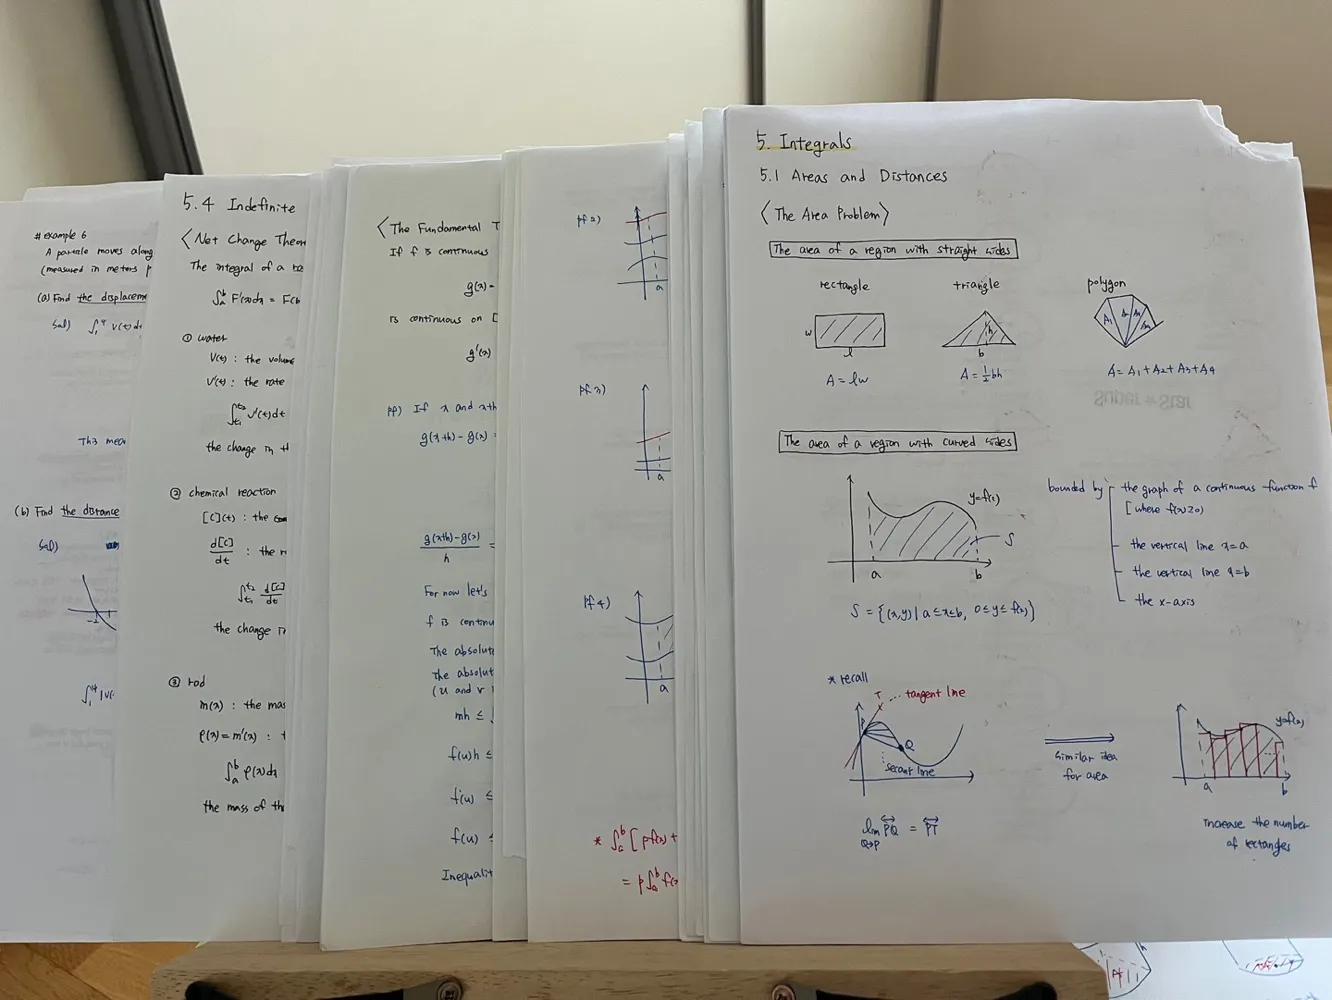 # example 6
A particle moves along
(measured in meters p
(a) Find the displacem
Sol) ∫₁⁴ v(t)dt
This mea
(b) Find the distance
Sol)
-2
∫₁⁴ |v(
5.4 Indefinite
< Net Change Theor
The integral of a ra
∫ₐᵇ F'(x)dx = F(b
① water
V(t) : the volume
V'(t) : the rate
∫ₜ₁ᵗ² V'(t)dt
the change in t
② chemical reaction
[C](t) : the con
d[C]/dt : the r
∫ₜ₁ᵗ² d[C]/dt
the change in
③ rod
m(x) : the mas
ρ(x) = m'(x) : t
∫ₐᵇ ρ(x)dx
the mass of th
< The Fundamental T
If f is continuous
g(x) =
is continuous on [
g'(x)
pf) If x and x+h
g(x+h) - g(x) =
g(x+h) - g(x) / h =
For now let's
f is continu
The absolut
the absolut
(u and v i
mh ≤ ∫
f(u)h ≤
f(u) ≤
f(u) ≤
Inequalit
pf 2)
a
pf 3)
a
pf 4)
a
* ∫ₐᵇ [pf(x) +
= p∫ₐᵇ f(x
5. Integrals
5.1 Areas and Distances
< The Area Problem >
The area of a region with straight sides
rectangle triangle polygon
w
l
h
b
A₁ A₂ A₃ A₄
A = lw
A = ½bh
A = A₁ + A₂ + A₃ + A₄
The area of a region with curved sides
y=f(x)
S
a b
S = {(x,y) | a ≤ x ≤ b, 0 ≤ y ≤ f(x)}
bounded by
the graph of a continuous function f
[where f(x) ≥ 0)
the vertical line x = a
the vertical line x = b
the x-axis
* recall
T ... tangent line
P
Q
secant line
lim PQ = PT
Q→P
similar idea
for area
y=f(x)
a b
Increase the number
of rectangles